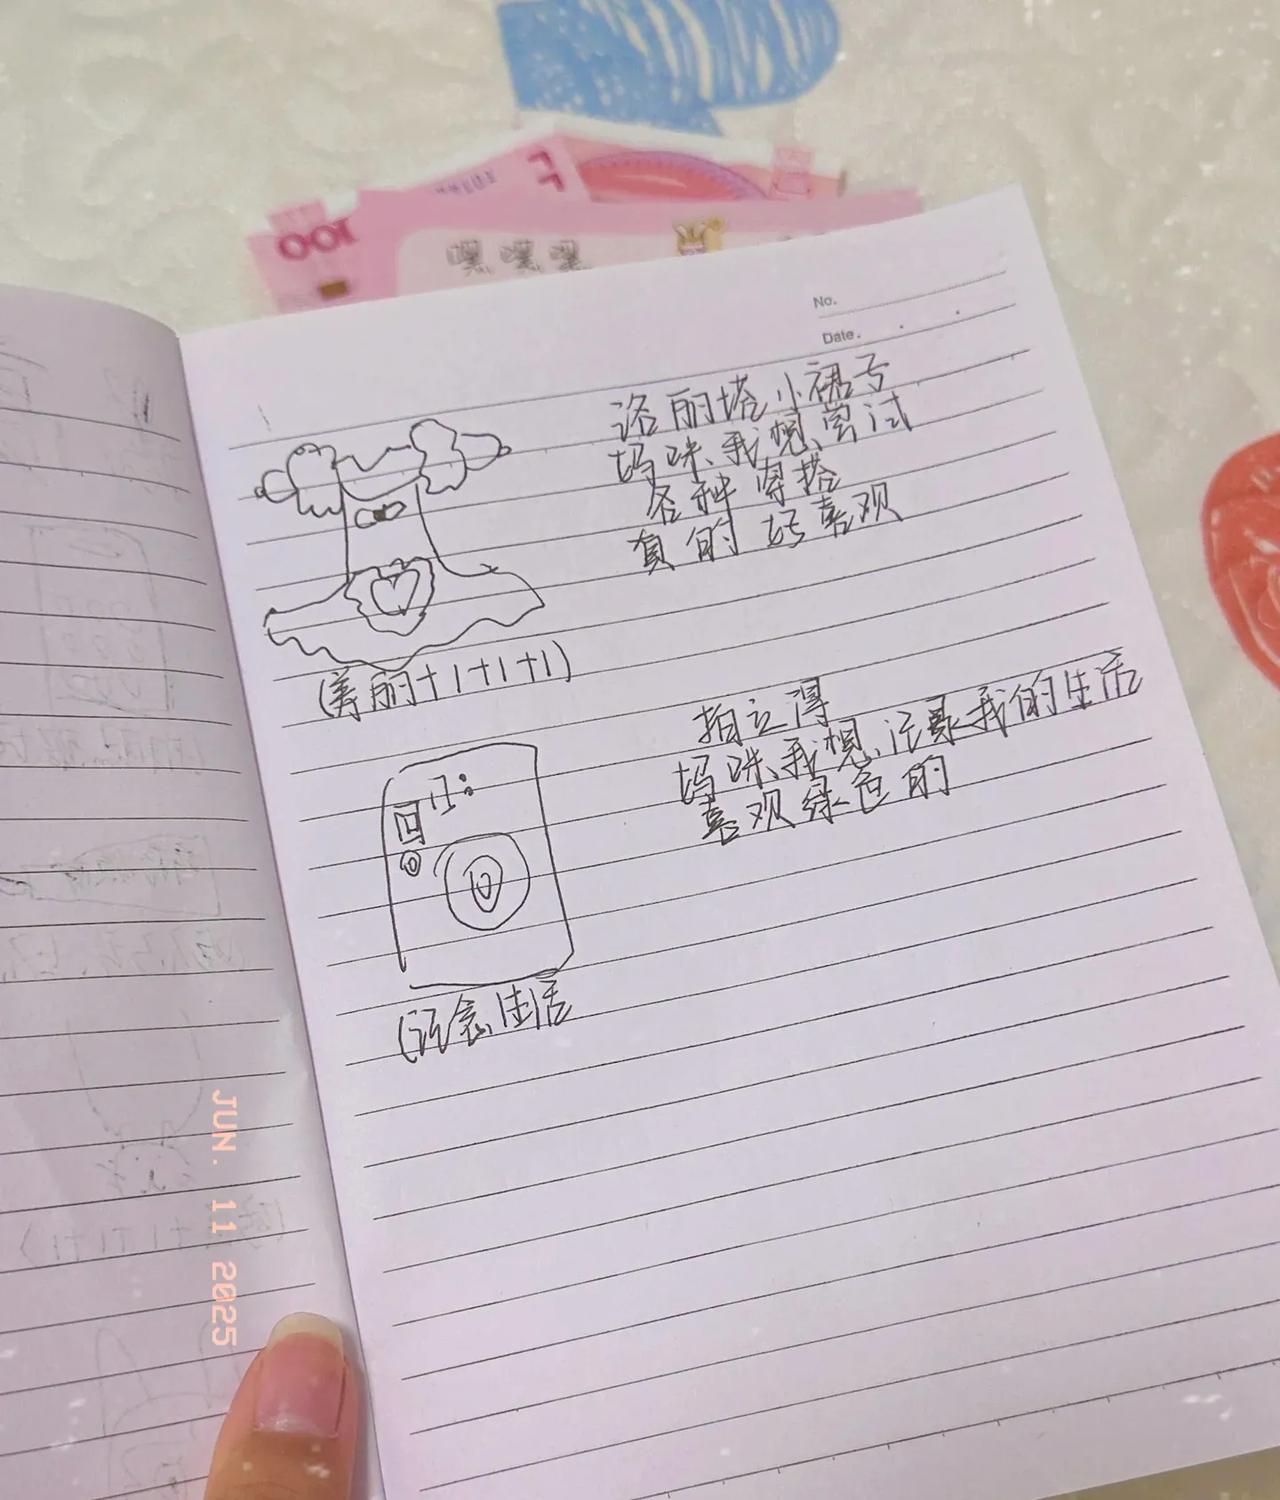 100
嘿 嘿 嘿
No.
Date.
洛丽塔小裙子
妈咪、我想、尝试
各种穿搭
真的好喜欢
(美丽+1+1+1)
拍立得
妈咪、我想、记录我的生活
喜欢绿色的
(记念生活
JUN. 11 2025